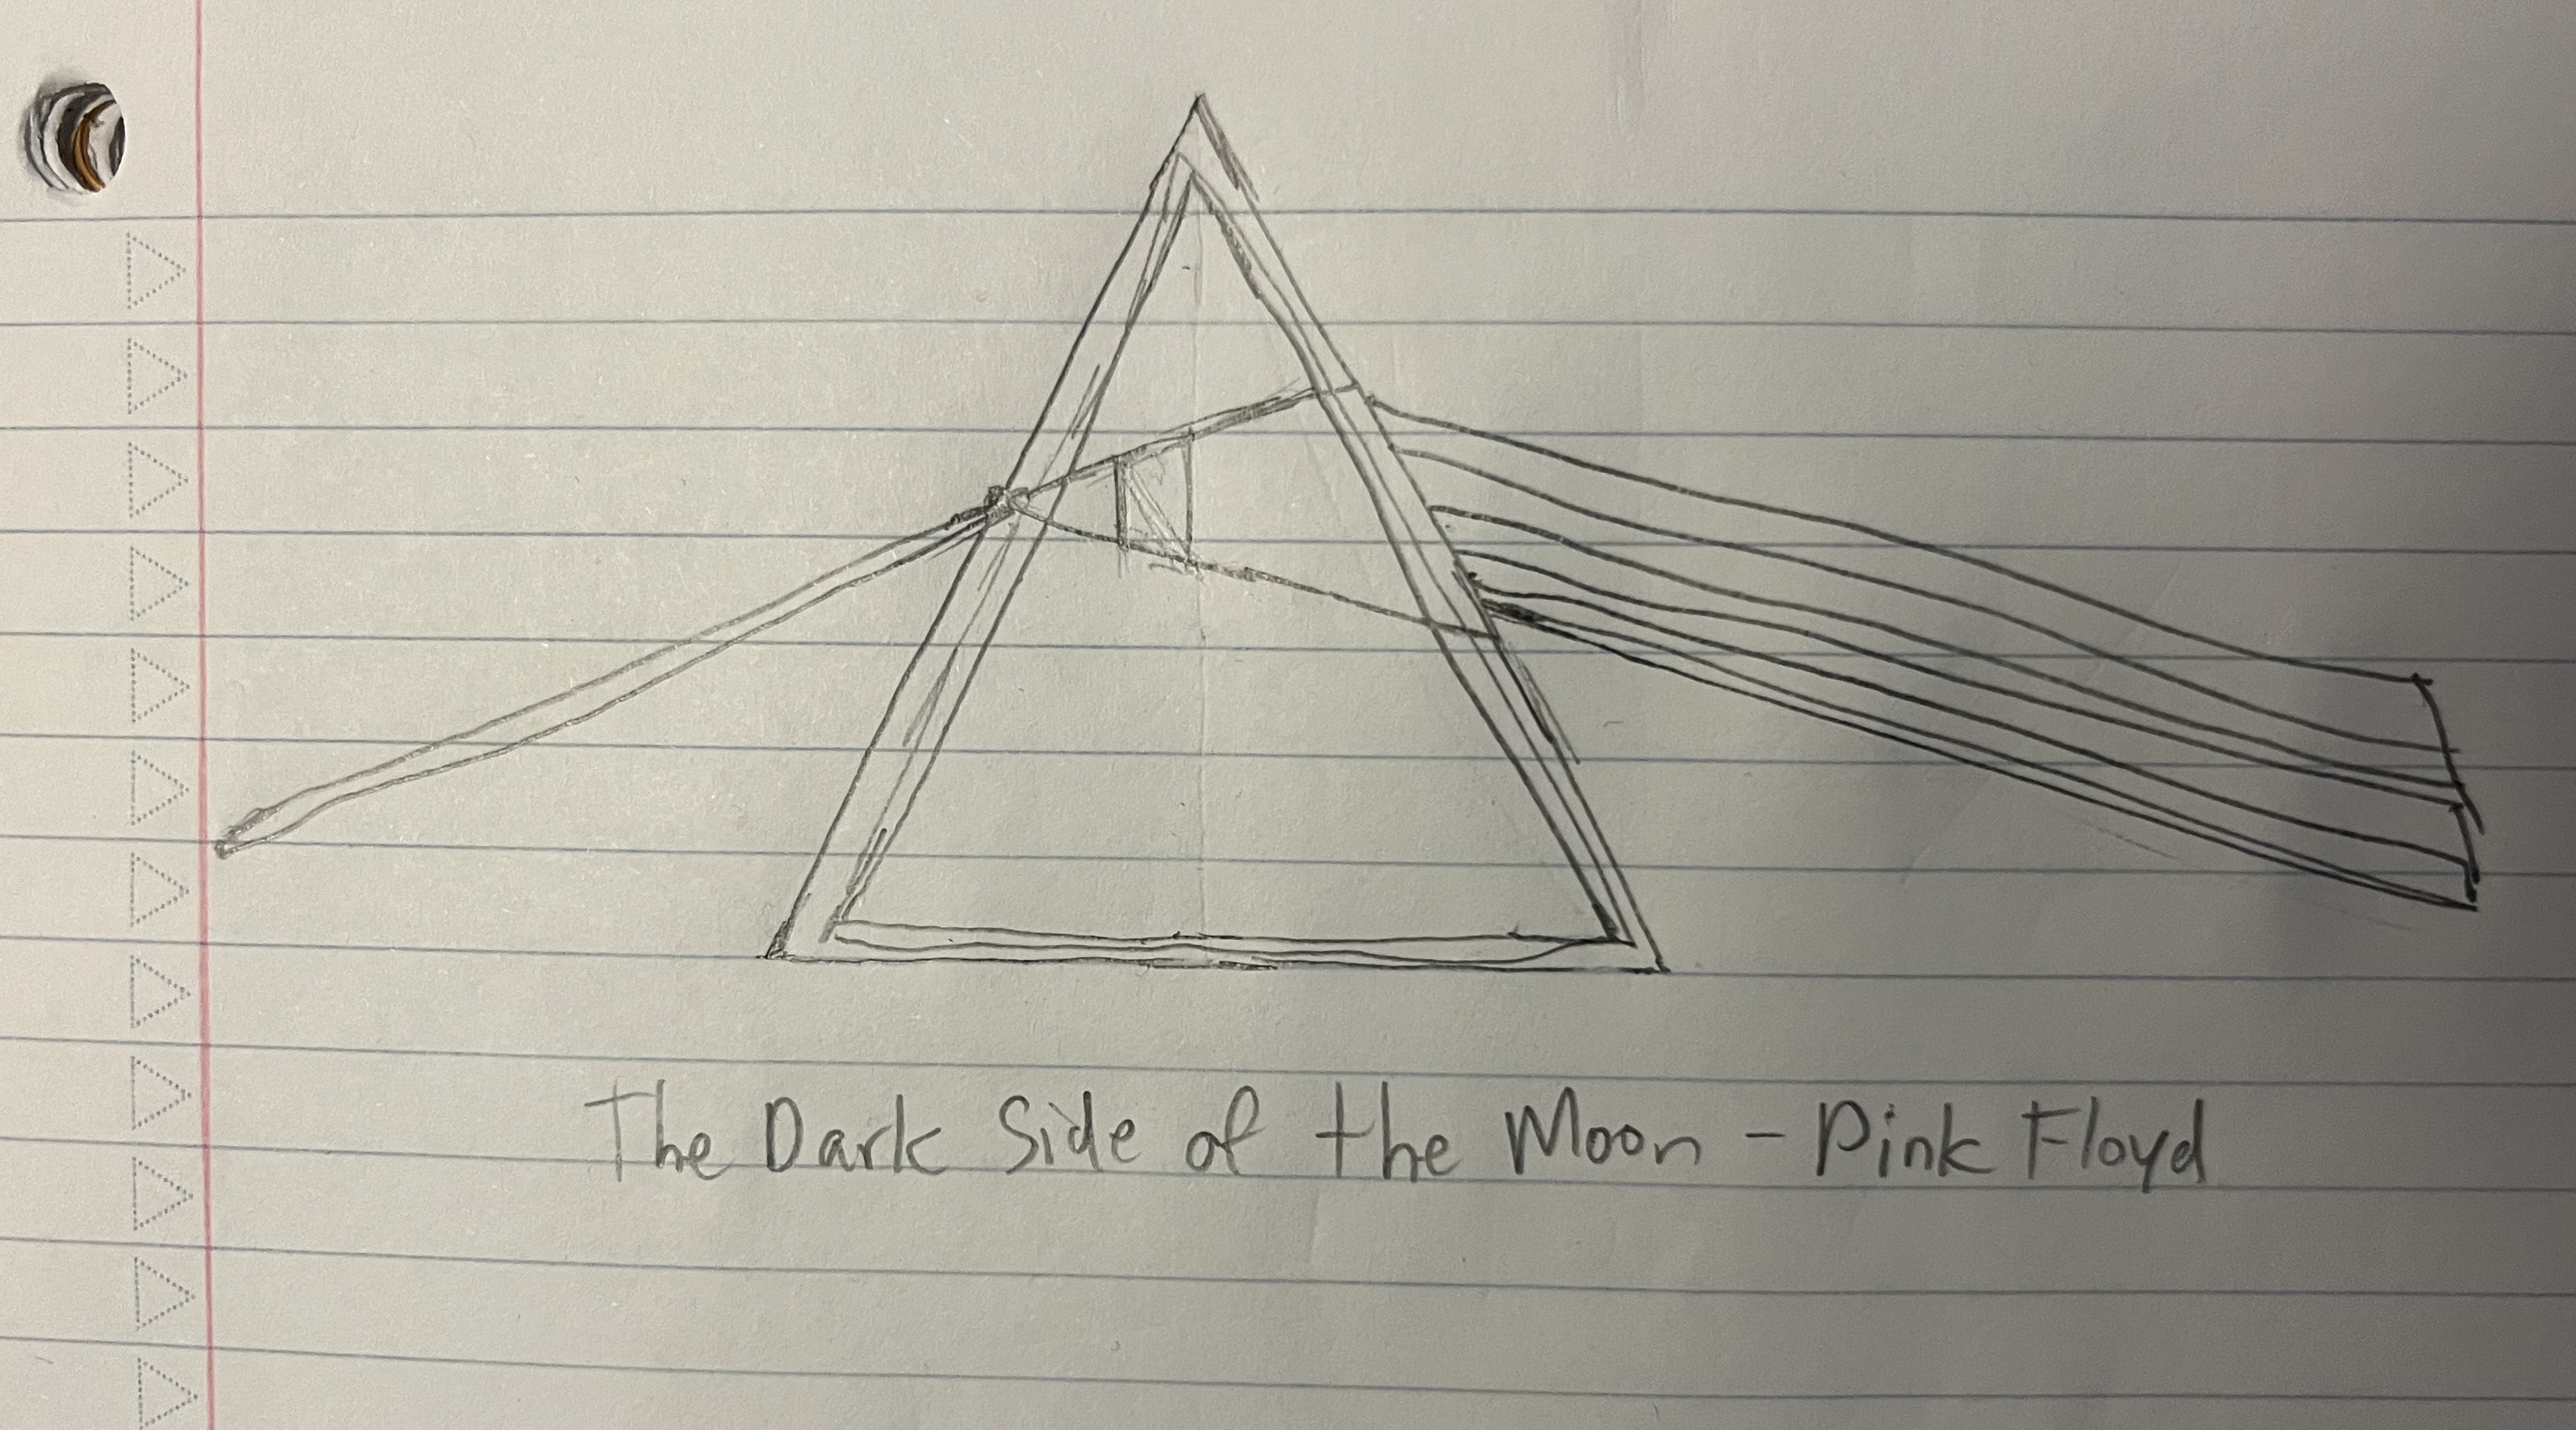 The Dark Side of the Moon - Pink Floyd